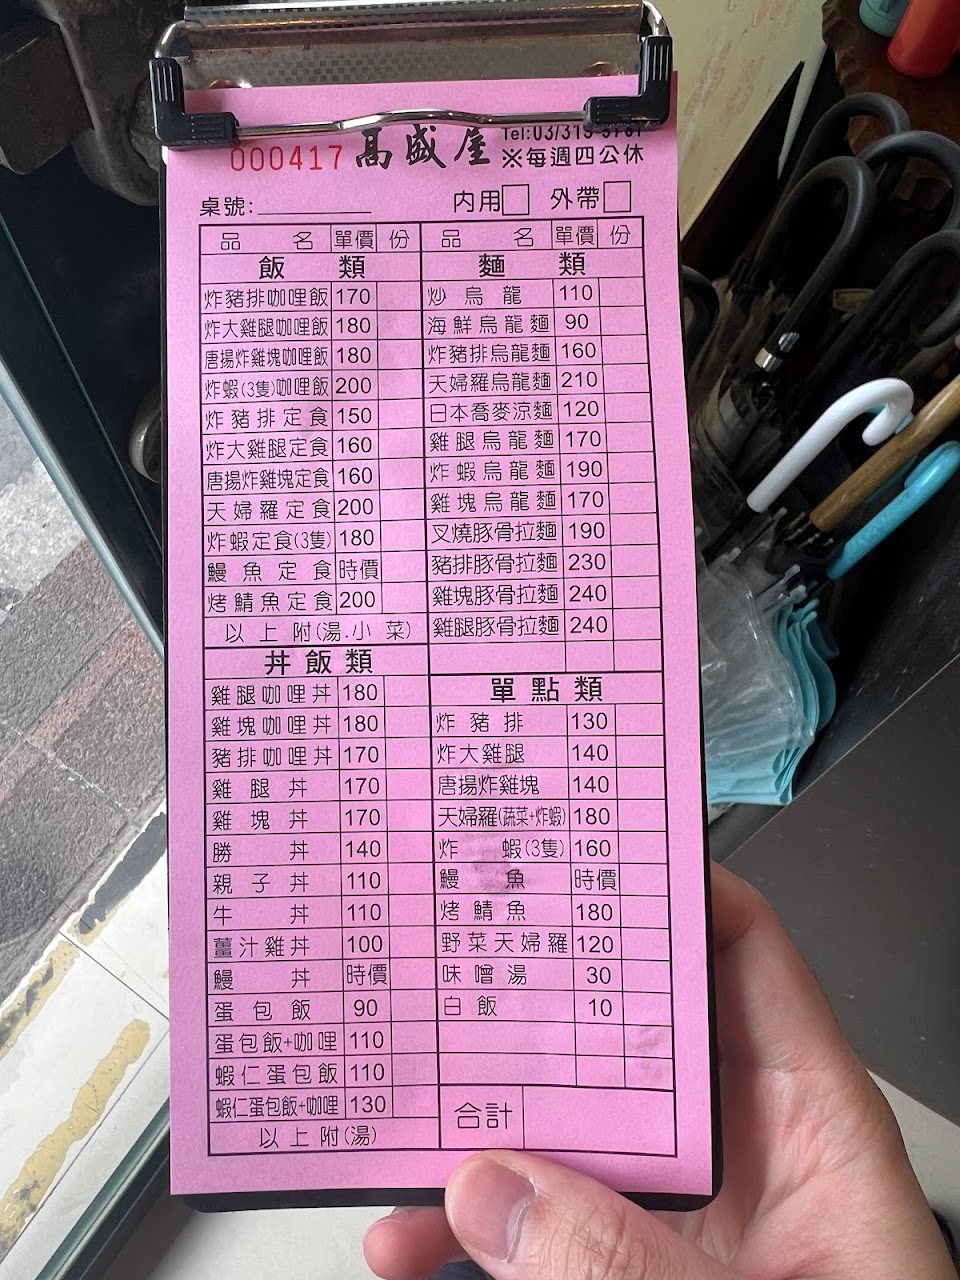 000417 高盛屋
※每週四公休
桌號: 內用 外帶
品名 單價 份
飯類
炸豬排咖哩飯 170
炸大雞腿咖哩飯 180
唐揚炸雞塊咖哩飯 180
炸蝦(3隻)咖哩飯 200
炸豬排定食 150
炸大雞腿定食 160
唐揚炸雞塊定食 160
天婦羅定食 200
炸蝦定食(3隻) 180
鰻魚定食 時價
烤鯖魚定食 200
以上附(湯.小菜)
丼飯類
雞腿咖哩丼 180
雞塊咖哩丼 180
豬排咖哩丼 170
雞腿丼 170
雞塊丼 170
勝丼 140
親子丼 110
牛丼 110
薑汁雞丼 100
鰻丼 時價
蛋包飯 90
蛋包飯+咖哩 110
蝦仁蛋包飯 110
蝦仁蛋包飯+咖哩 130
以上附(湯)
品名 單價 份
麵類
炒烏龍 110
海鮮烏龍麵 90
炸豬排烏龍麵 160
天婦羅烏龍麵 210
日本喬麥涼麵 120
雞腿烏龍麵 170
炸蝦烏龍麵 190
雞塊烏龍麵 170
叉燒豚骨拉麵 190
豬排豚骨拉麵 230
雞塊豚骨拉麵 240
雞腿豚骨拉麵 240
單點類
炸豬排 130
炸大雞腿 140
唐揚炸雞塊 140
天婦羅(蔬菜+炸蝦) 180
炸蝦(3隻) 160
鰻魚 時價
烤鯖魚 180
野菜天婦羅 120
味噌湯 30
白飯 10
合計